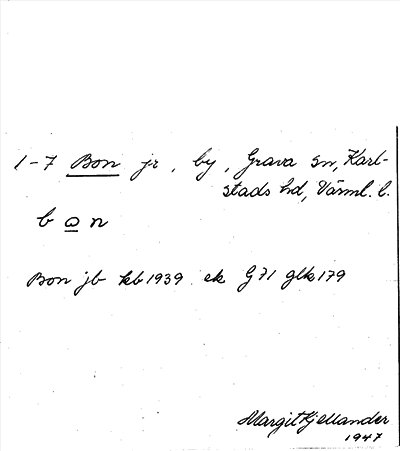 1-7 Bon jr, by, Grava sn, Karl-
stads hd, Värml. l.
b ω n
Bon jb kb 1939 ek G71 glk 179
Margit Kjellander
1947